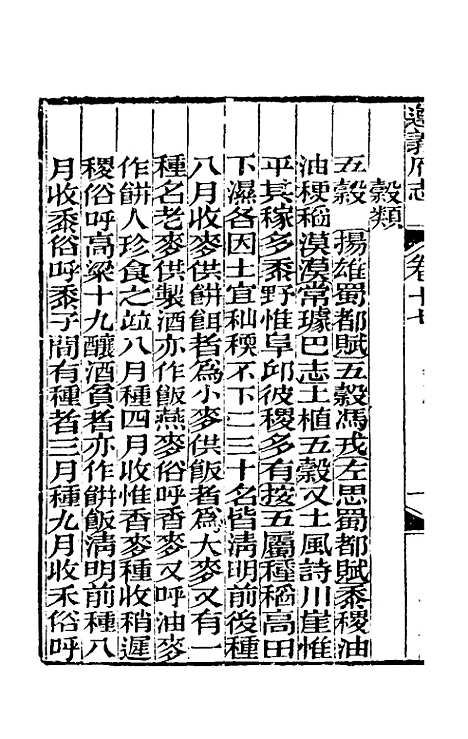 遵義府志
卷十七
一
穀類
五穀　揚雄蜀都賦五穀馮戎左思蜀都賦黍稷油
油稉稻漠漠常璩巴志土植五穀又土風詩川崖惟
平其稼多黍野惟阜邱彼稷多有按五屬種稻高田
下濕各因土宜秈稉不下二三十名皆淸明前後種
八月收麥供餅餌者爲小麥供飯者爲大麥又有一
種名老麥供製酒亦作飯燕麥俗呼香麥又呼油麥
作餅人珍食之竝八月種四月收惟香麥種收稍遲
稷俗呼高粱十九釀酒貧者亦作餅飯淸明前種八
月收黍俗呼黍子間有種者三月種九月收禾俗呼